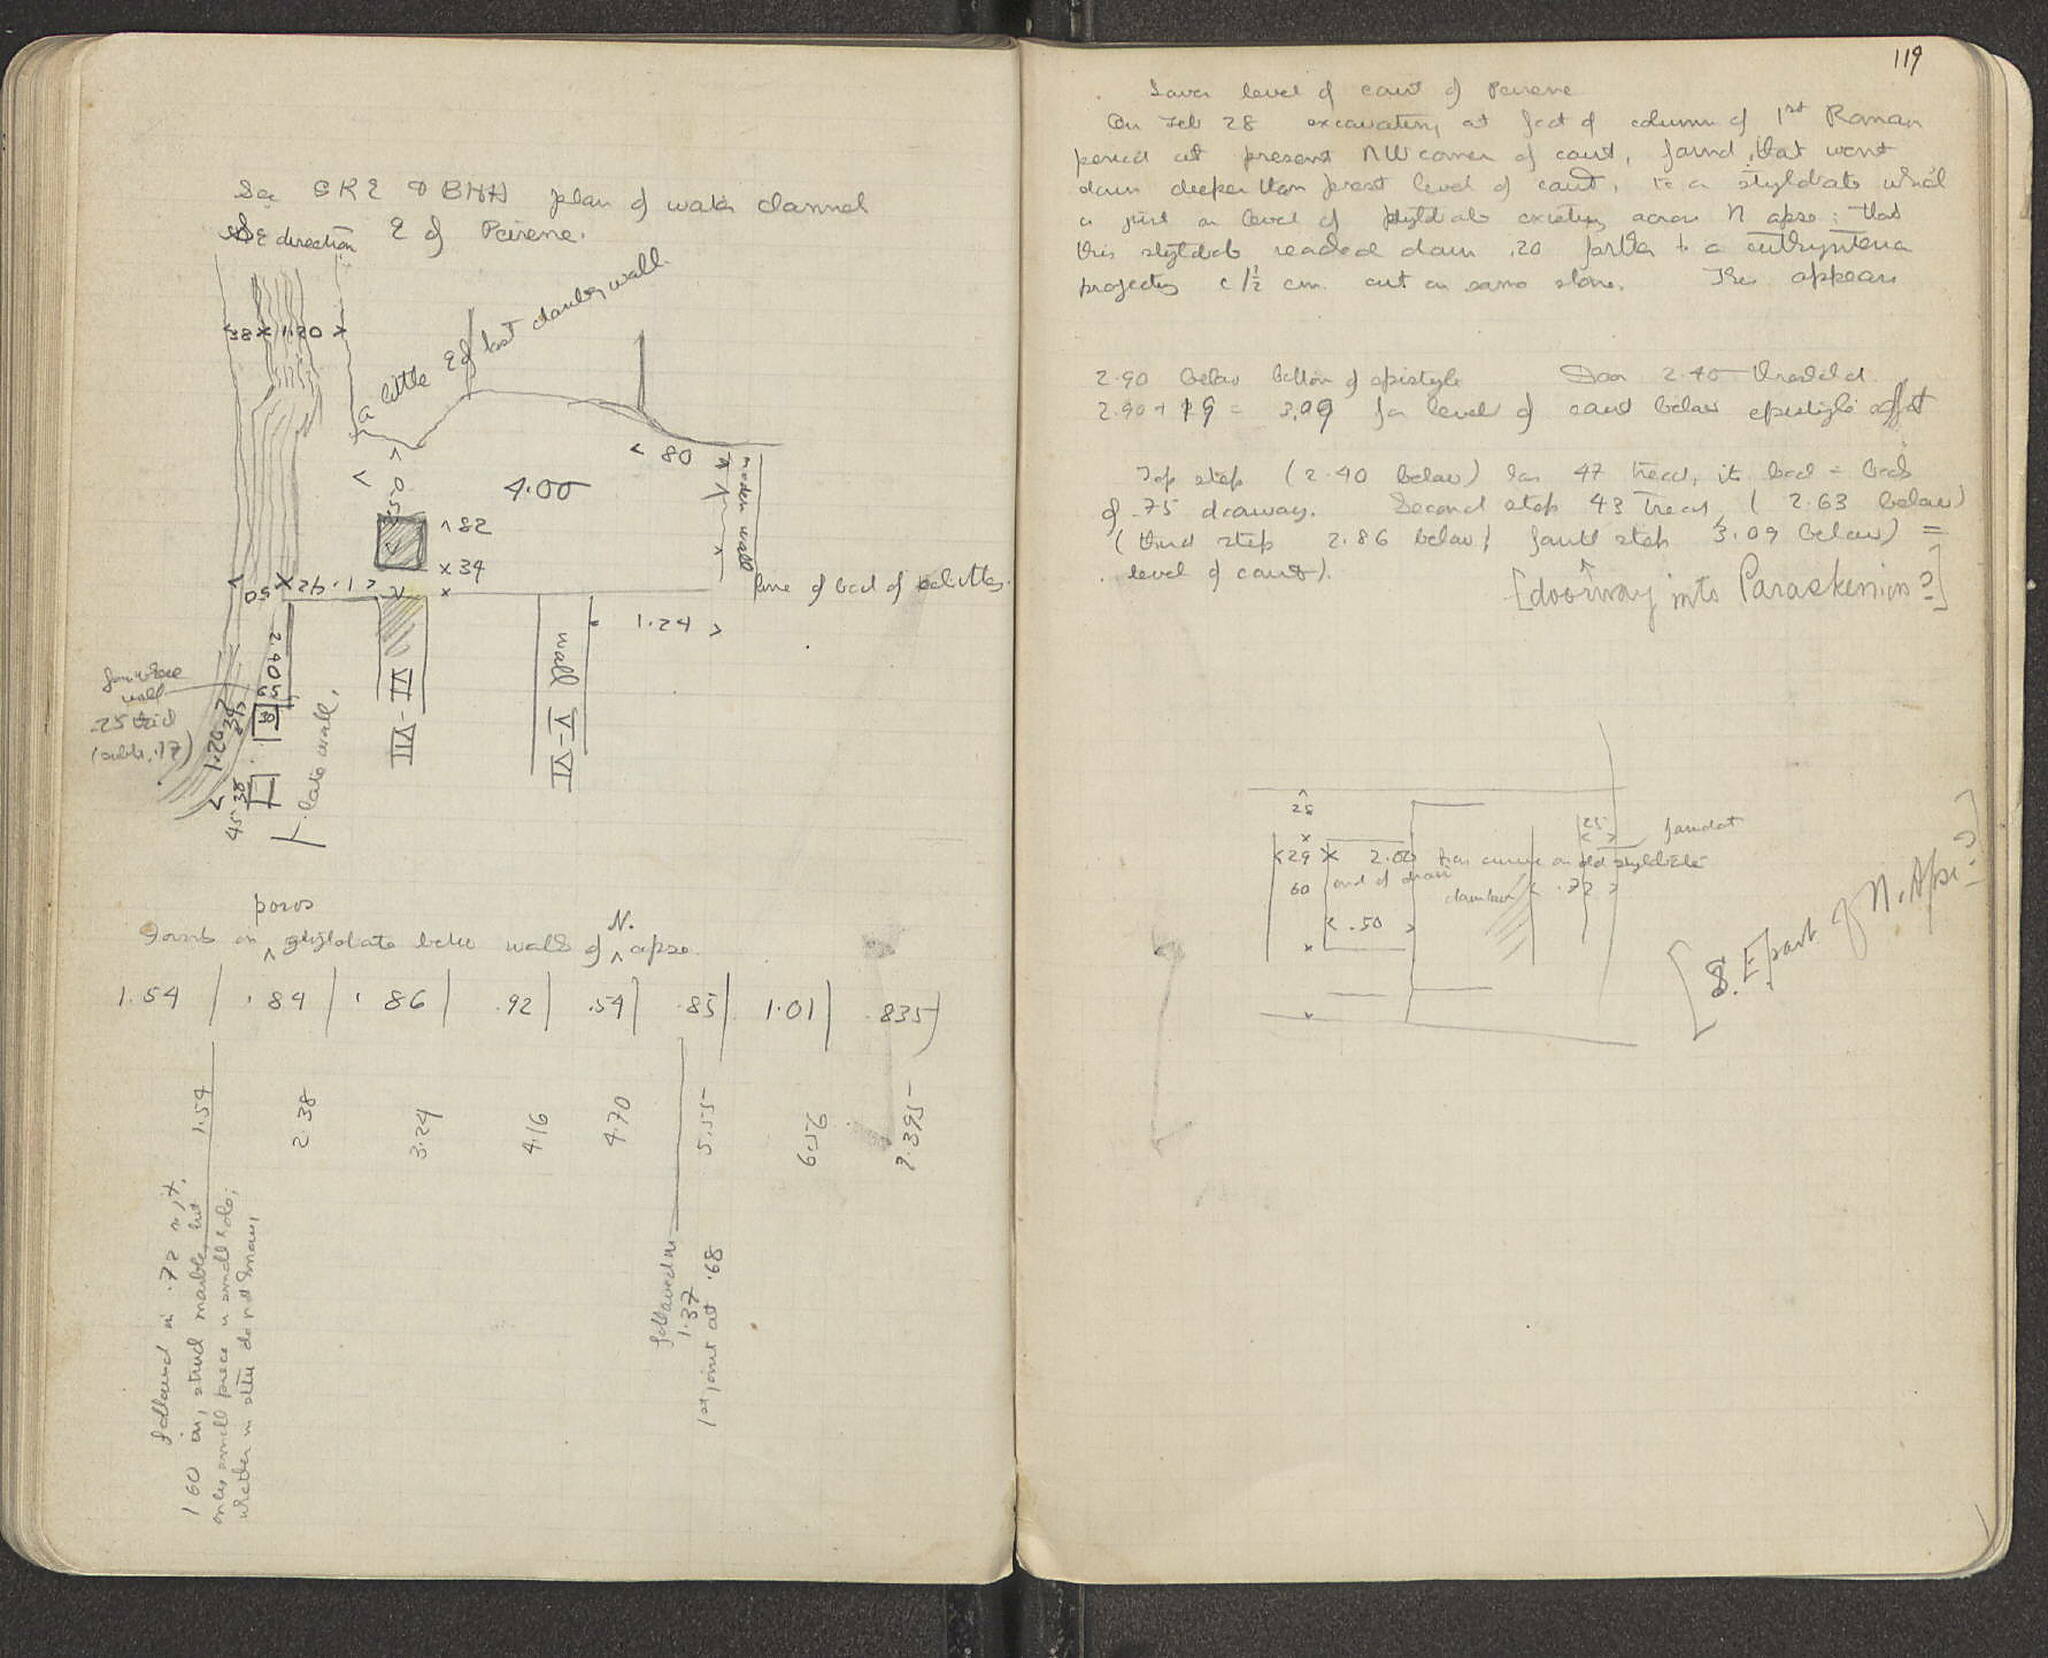 See GKE & BHH plan of water channel
SE direction E of Peirene.
a little E of last chamber wall.
38 x 1.20 x
80
4.00
modern wall
.50
82
x 34
50 x 92 . 1.21
line of back of
1.24
2.40
wall V-VI
VI-VII
late wall.
wall
.25 thick
1.20
45 38
poros
N.
Joints on stylobate betw walls of apse.
1.54 | .84 | .86 | .92 | .54 | .85 | 1.01 | .835
1.54
2.38
3.24
4.16
4.70
5.55
6.56
7.395
followed in .72
1 60 in, strud marble, but
only small piece in small hole;
whether in situ do not know,
followed in
1.37
1st joint at .68
119
Lower level of court of Peirene
On Feb 28 excavating at foot of column of 1st Roman
period at present NW corner of court, found that went
down deeper than present level of court, to a stylobate which
is just on level of stylobate existing across N apse; that
this stylobate reached down .20 further to a euthynteria
projecting c 1½ cm. cut on same stone. This appears
2.90 below bottom of epistyle Door 2.40 threshold
2.90 + 19 = 3.09 for level of court below epistyle
Top step (2.40 below) has 47 tread, its back = back
of .75 doorway. Second step 43 tread, (2.63 below)
(third step 2.86 below; fourth step 3.09 below) =
level of court).
[doorway into Paraskenion?]
25
25
29 x 2.00 from curve on old stylobate
60 end of drain
chamber .72
.50
[S. E part of N. Apse?]